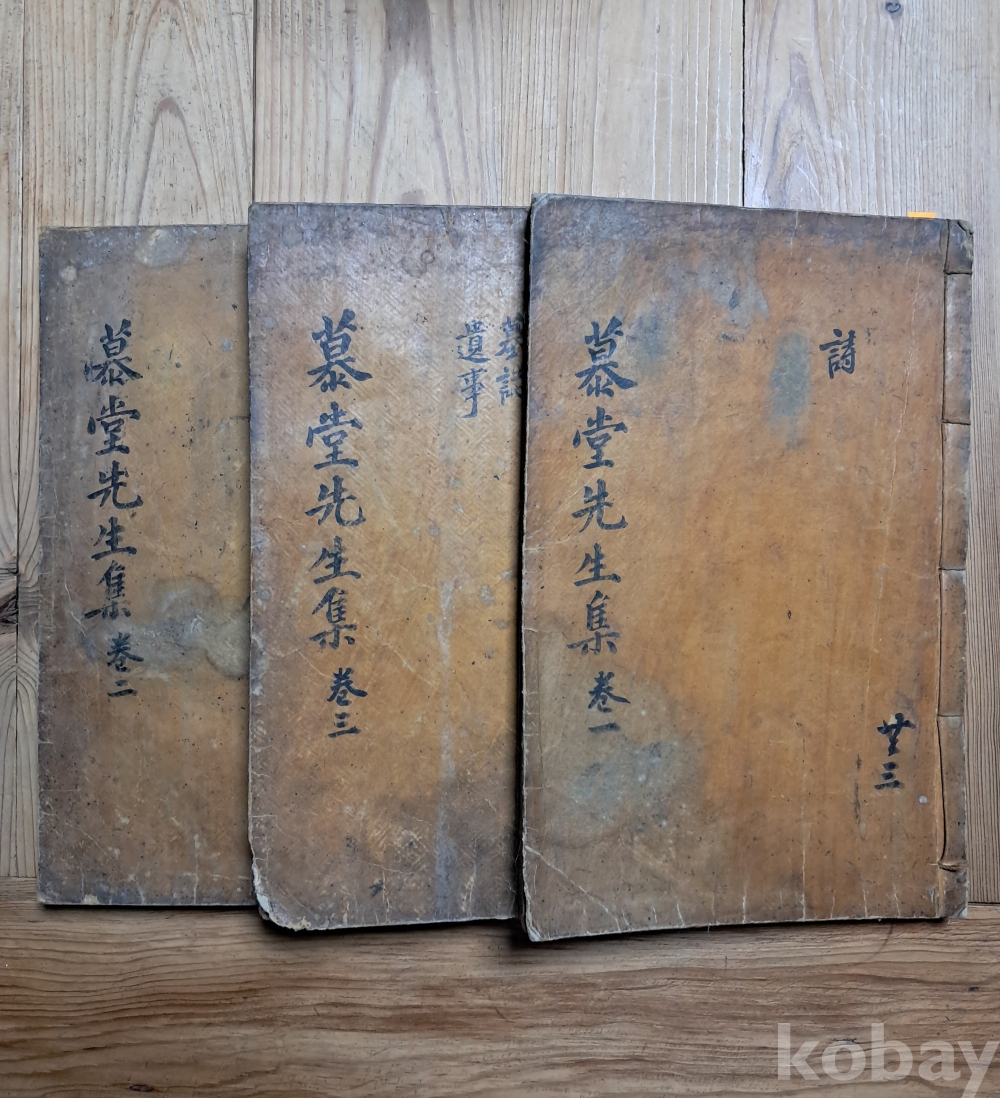 詩
共三
慕堂先生集 卷一
墓誌
遺事
慕堂先生集 卷三
慕堂先生集 卷二
kobay